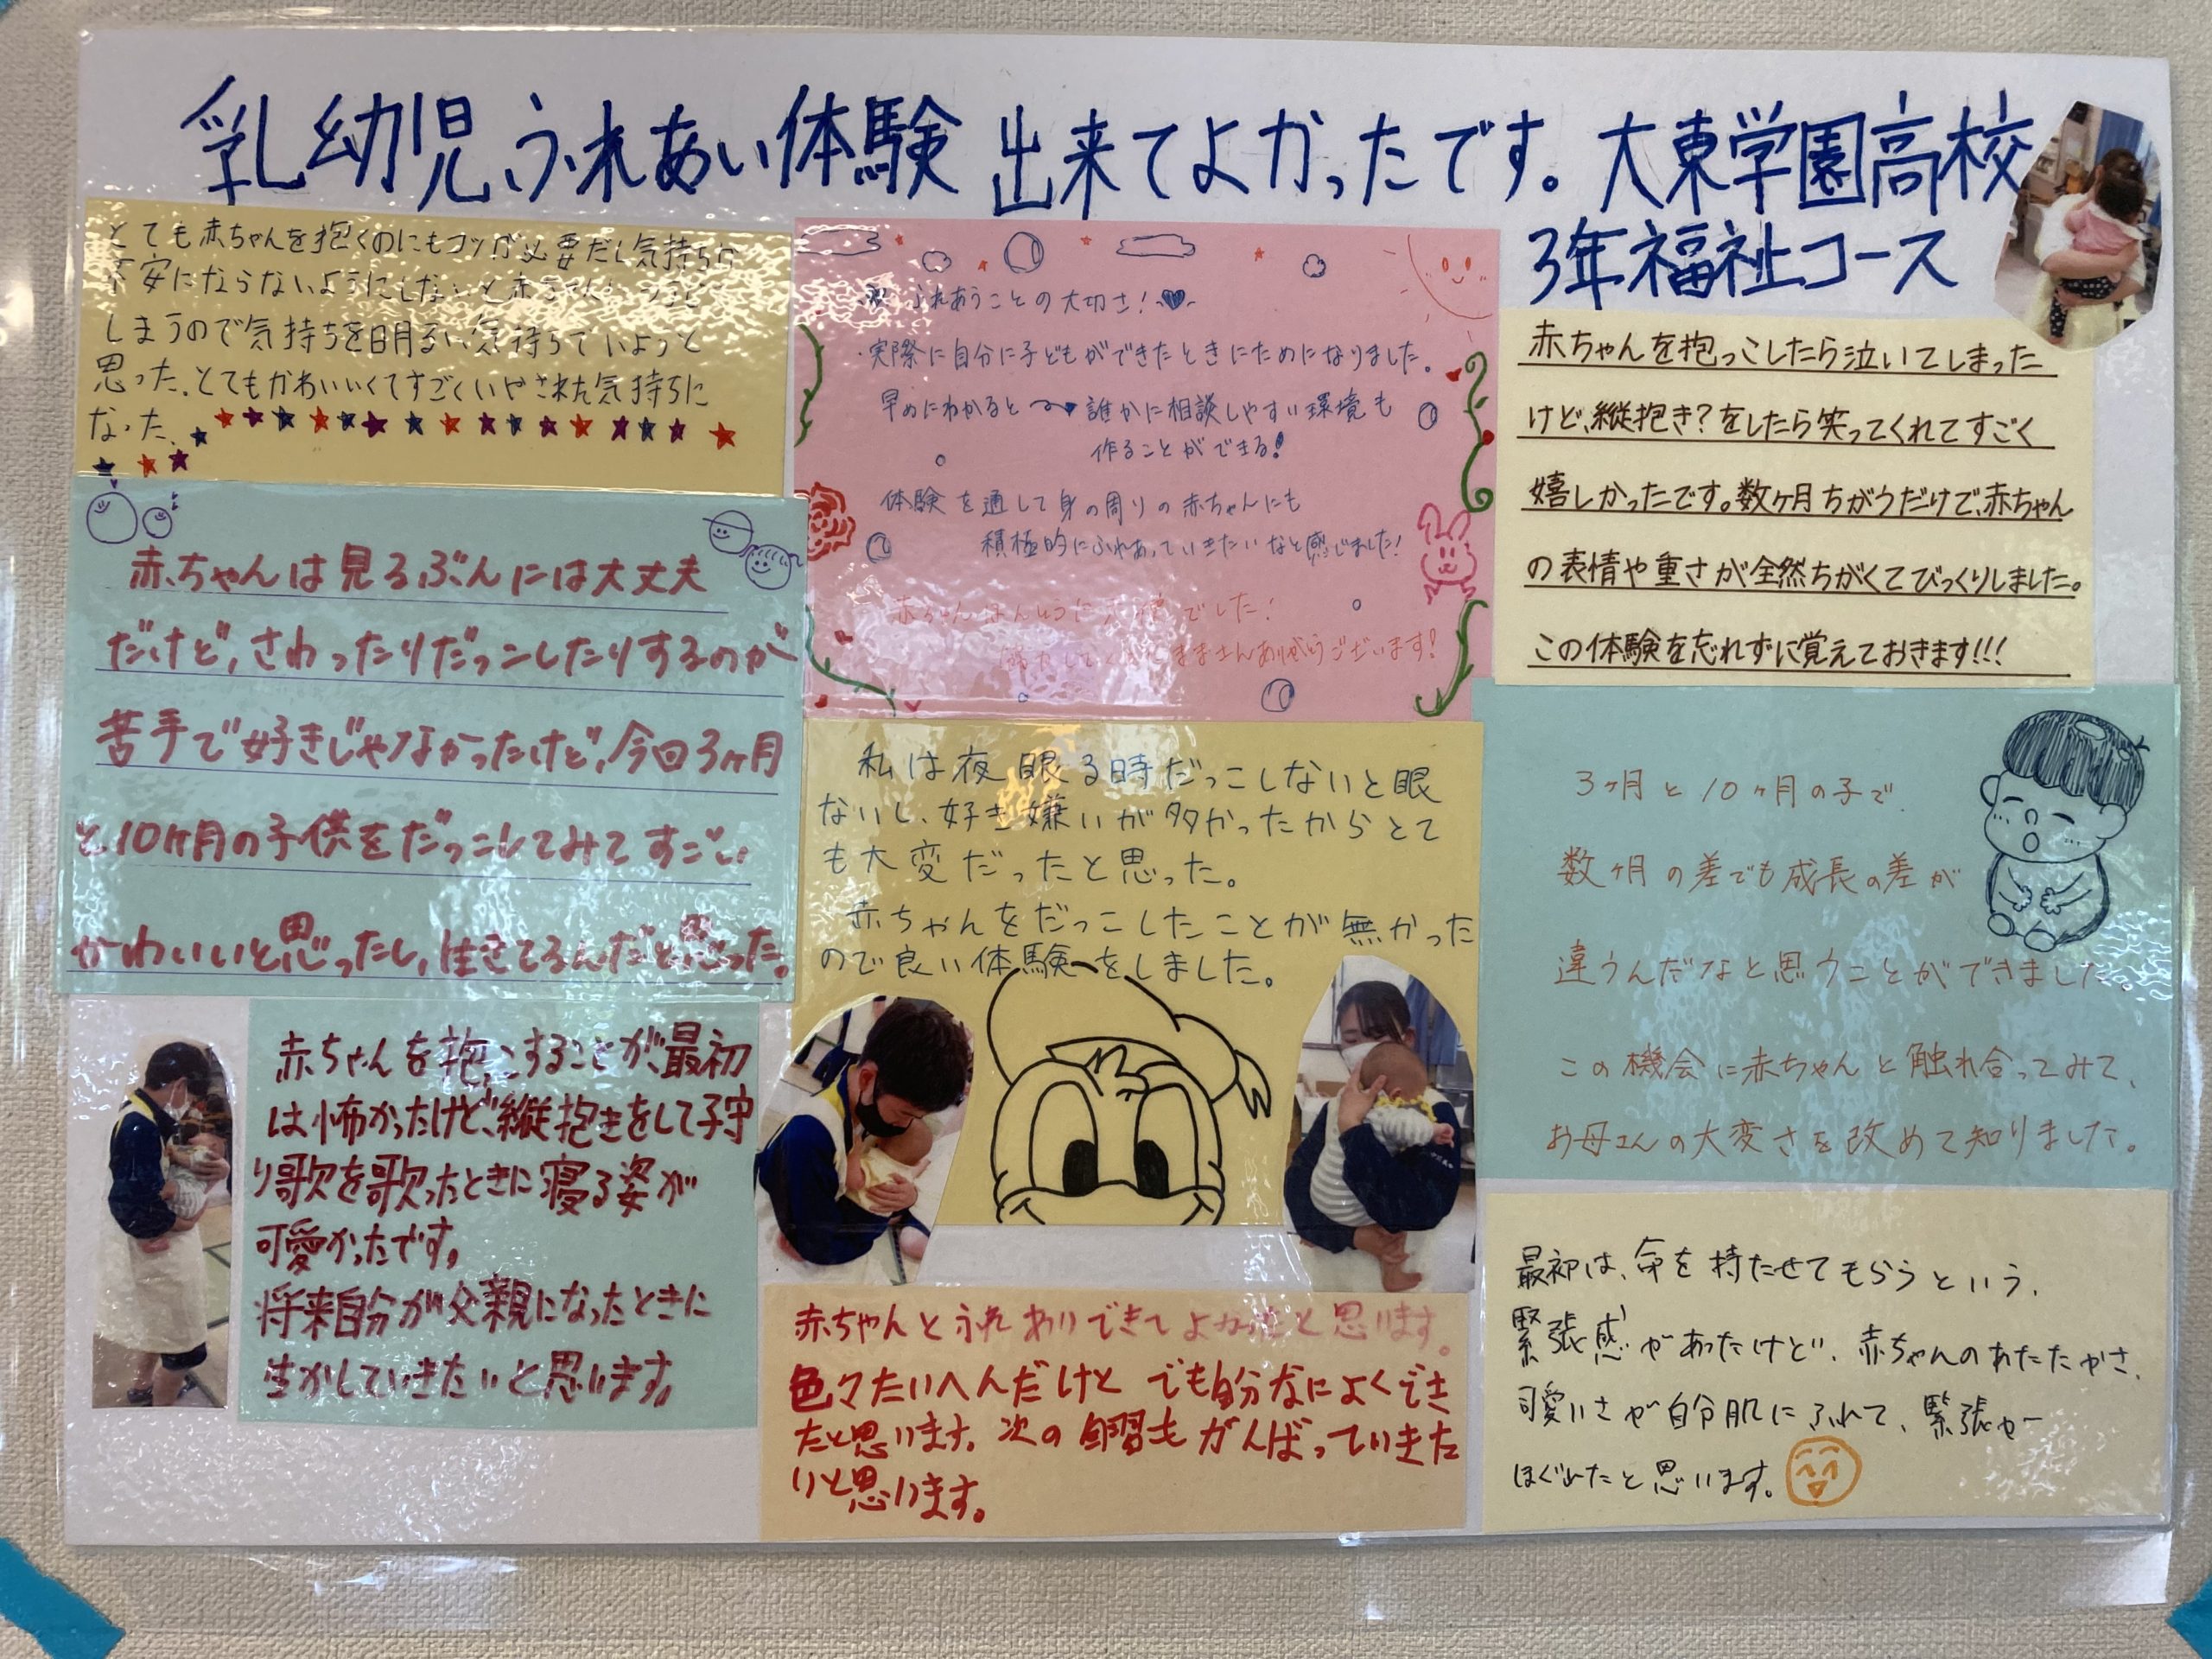 乳幼児ふれあい体験 出来てよかったです。大東学園高校
3年福祉コース
とても赤ちゃんを抱くのにもコツが必要だし気持ちが
不安にならないようにしないと赤ちゃん
しまうので気持ちを明るい気持ちでいようと
思った、とてもかわいいくてすごくいやされた気持ちに
なった、
赤ちゃんは見るぶんには大丈夫
だけど,さわったりだっこしたりするのが
苦手で好きじゃなかったけど,今回3ヶ月
と10ヶ月の子供をだっこしてみてすごい
かわいいと思ったし,生きてるんだと思った。
赤ちゃんを抱っこすることが、最初
は怖かったけど、縦抱きをして子守
り歌を歌ったときに寝る姿が
可愛かったです。
将来自分が父親になったときに
生かしていきたいと思います。
ふれあうことの大切さ!
・実際に自分に子どもができたときにためになりました。
早めにわかると 誰かに相談しやすい環境も
作ることができる!
体験を通して身の周りの赤ちゃんにも
積極的にふれあっていきたいなと感じました!
赤ちゃんほんとうに でした!
ままさんありがとうございます!
私は夜眠る時だっこしないと眠
ないし、好き嫌いが多かったからとて
も大変だったと思った。
赤ちゃんをだっこしたことが無かった
ので良い体験をしました。
赤ちゃんとふれ わりできてよかったと思います。
色々たいへんだけど でも自分なによくでき
たと思います。次の 習もがんばっていきた
いと思います。
赤ちゃんを抱っこしたら泣いてしまった
けど、縦抱き?をしたら笑ってくれてすごく
嬉しかったです。数ヶ月ちがうだけで、赤ちゃん
の表情や重さが全然ちがくてびっくりしました。
この体験を忘れずに覚えておきます!!!
3ヶ月と10ヶ月の子で、
数ヶ月の差でも成長の差が
違うんだなと思うことができました。
この機会に赤ちゃんと触れ合ってみて、
お母さんの大変さを改めて知りました。
最初は、命を持たせてもらうという、
緊張感があったけど、赤ちゃんのあたたかさ、
可愛いさが自分肌にふれて、緊張が
ほぐれたと思います。